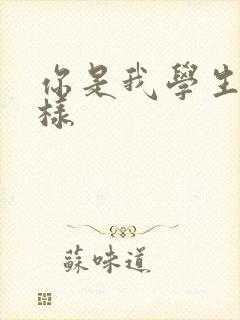 你是我學生
樣
蘇味道